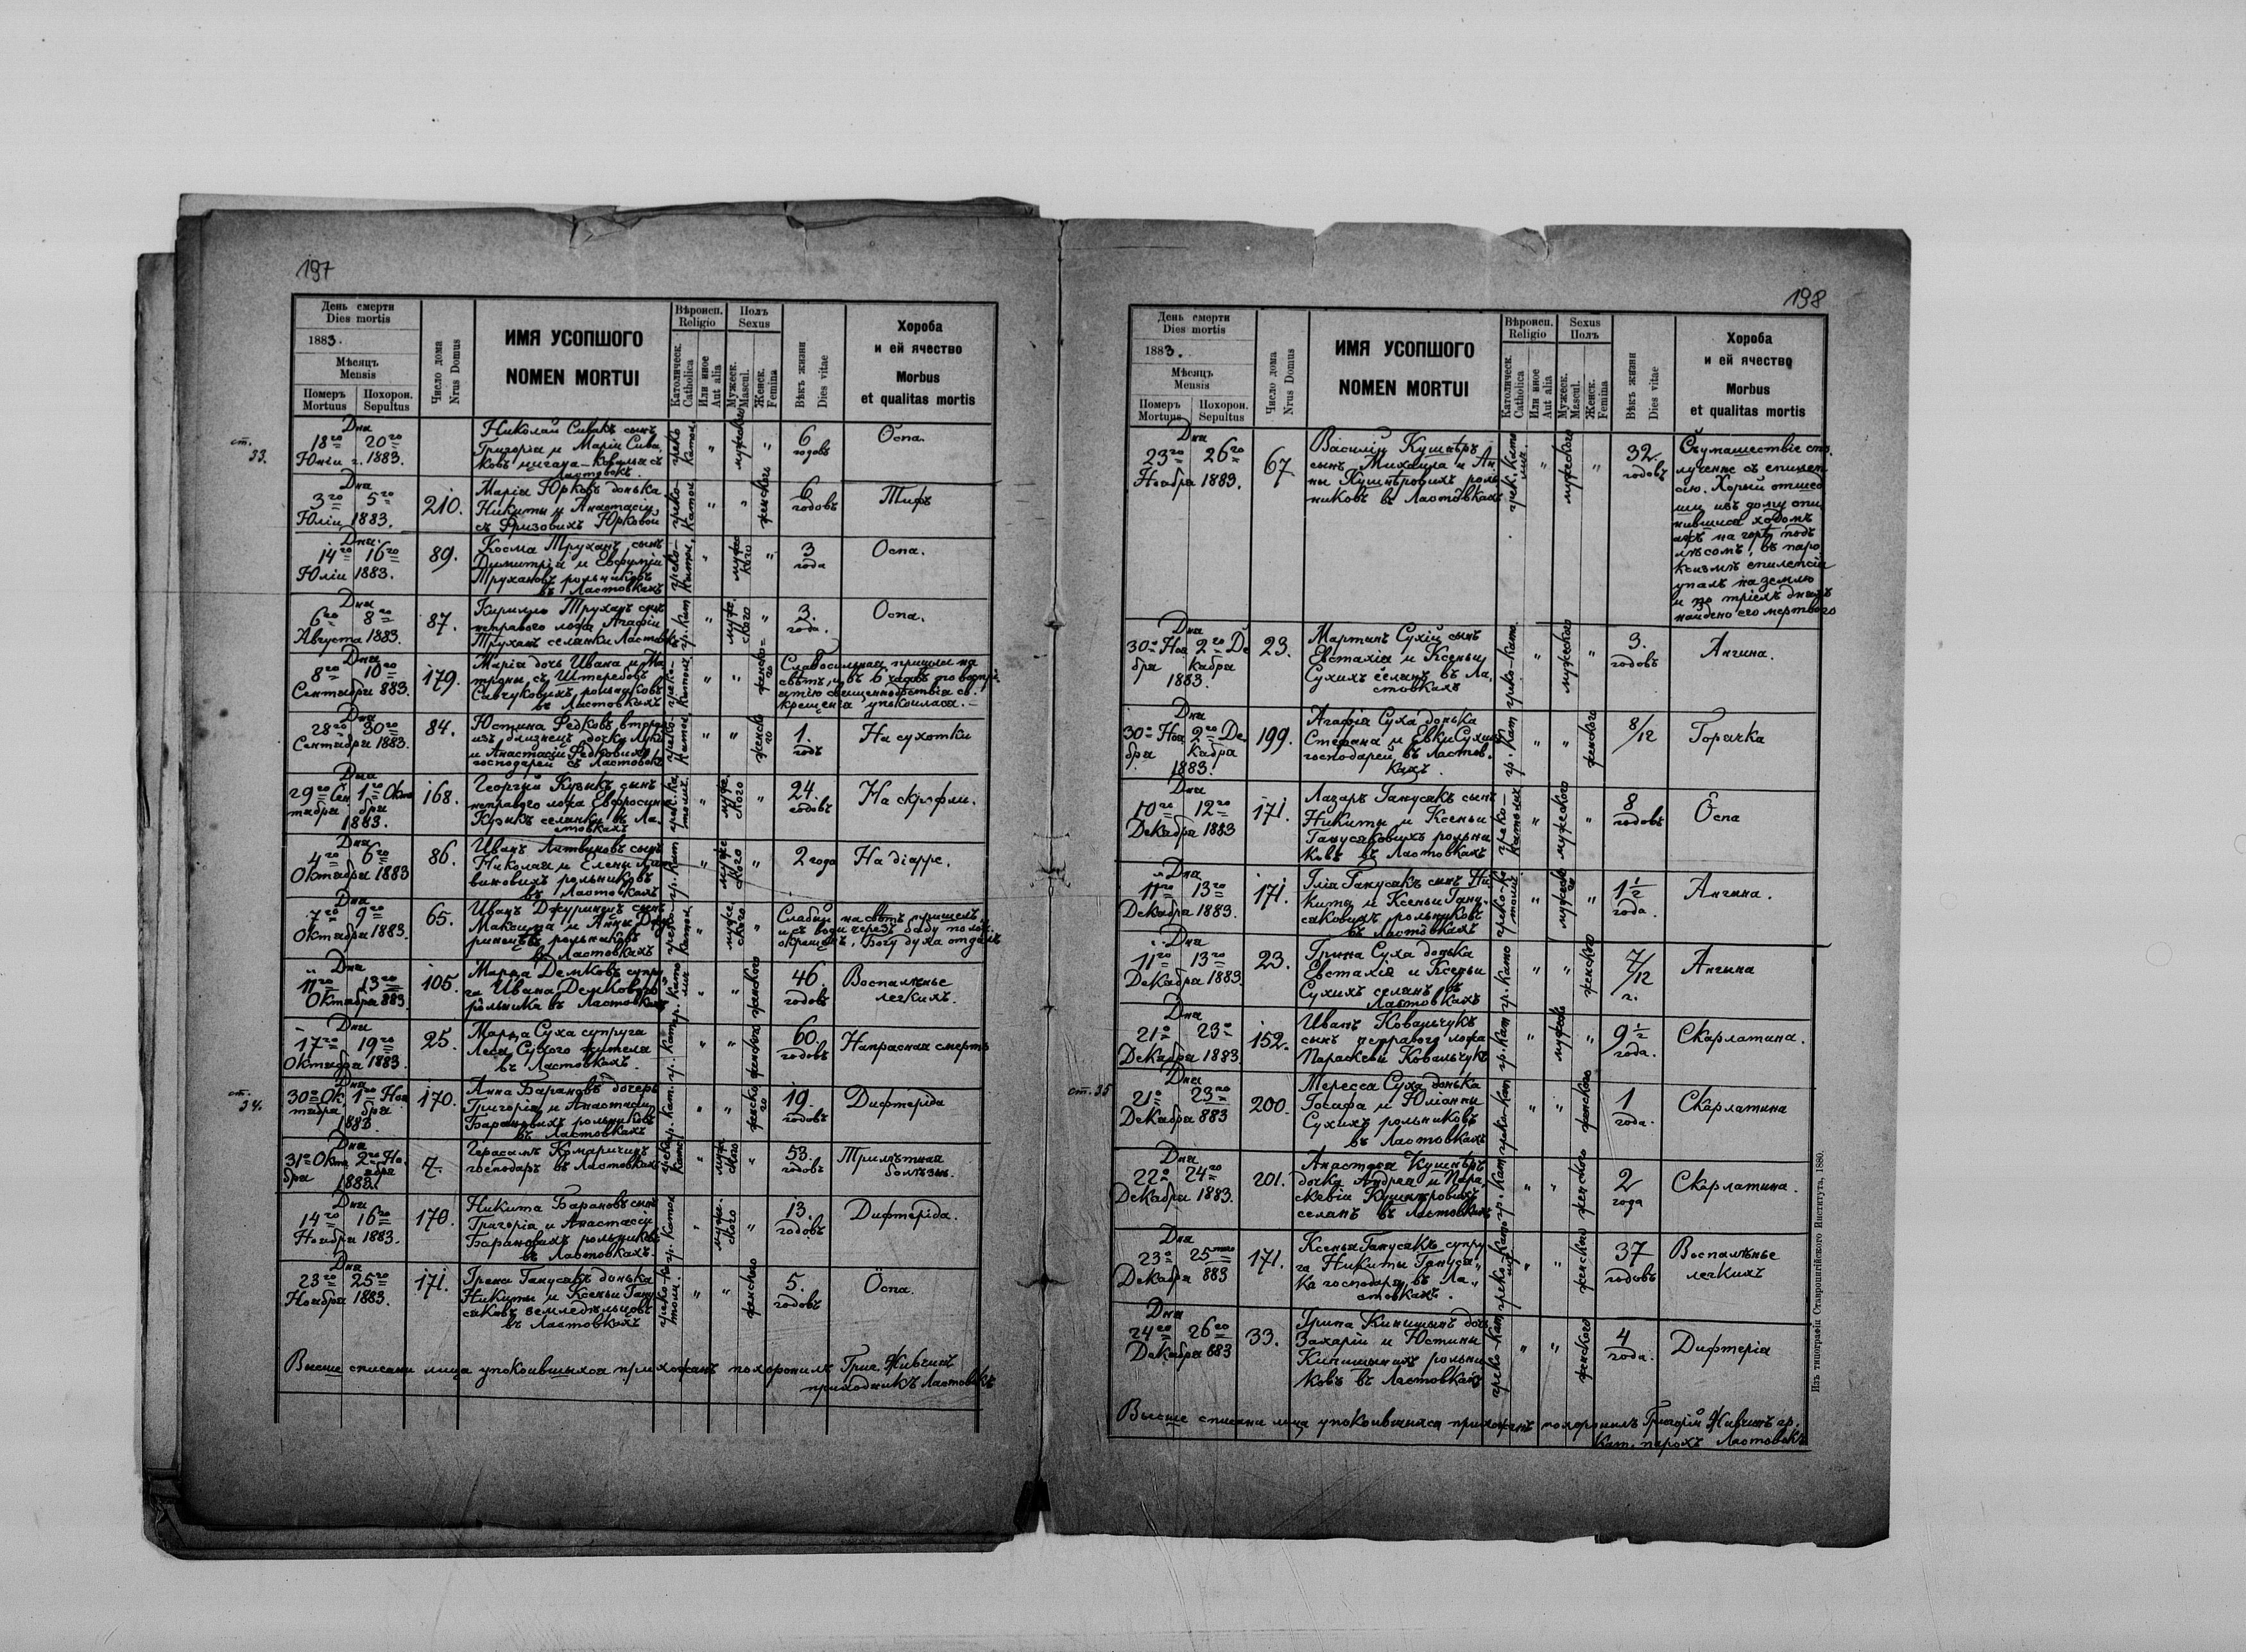 197
День смерти
Dies mortis
1883.
Мѣсяцъ
Mensis
Померъ
Mortuus
Похорон.
Sepultus
Число дома
Nrus Domus
ИМЯ УСОПШОГО
NOMEN MORTUI
Вѣроисп.
Religio
Католическ.
Catholica
Или иное
Aut alia
Полъ
Sexus
Мужеск.
Mascul.
Женск.
Femina
Вѣкъ жизни
Dies vitae
Хороба
и ей ячество
Morbus
et qualitas mortis
ст.
33.
Дня
18го 20го
Юніи г. 1883.
Николай Сивакъ сынъ
Григорія и Маріи Сива
ковъ цигана-коваля съ
Ластовокъ.
греко
катол
"
мужеского
"
6
годовъ
Оспа.
Дня
3го 5го
Юліи 1883.
210.
Марія Юрковъ донька
Никиты и Анастасіи
съ Фризовихъ Юрковой
греко-
катол
"
"
женского
6
годовъ
Тифъ
Дня
14го 16го
Юліи 1883.
89.
Косма Труханъ сынъ
Димитрія и Евфуміи
Трухановъ рольниковъ
въ Ластовкахъ
греко-
катол.
"
муже
кого
"
3
года
Оспа.
Дня
6го 8го
Августа 1883.
87.
Кирилло Труханъ сынъ
неправого ложа Агафіи
Труханъ селянки Ластовкъ
гр. кат
"
муже.
ского
"
3.
года.
Оспа.
Дня
8го 10го
Сентября 883.
179.
Марія дочь Ивана и Ма
троны съ Штередовъ
Савчуковихъ рольниковъ
въ Ластовкахъ
греко-
катол.
"
"
женско-
го
Слабосильная пришла на
свѣтъ, и въ 6 часовъ по воспрі
атію священнодѣйствія св.
крещенія упокоилася.-
Дня
28го 30го
Сентября 1883.
84.
Юстина Федковъ втора
изъ близнецъ дочка Луки
и Анастасіи Федковихъ
господарей съ Ластовокъ
греко-
катол
"
"
женско
го
1.
годъ
На сухотки
Дня
29го Сен 1го Октя
тября бря
1883.
168.
Георгій Кузикъ сынъ
неправого ложа Евфросини
Кузикъ селянки въ Ла-
стовкахъ
грек. ка
толич.
"
муже.
ского
"
24.
годовъ
На скрофли.
Дня
4го 6го
Октября 1883
86.
Иванъ Литвиновъ сынъ
Николая и Елены Лит
виновихъ рольниковъ
въ Ластовкахъ
гр. кат
"
муже
ского
"
2 года
На діарре.
Дня
7го 9го
Октября 1883.
65.
Иванъ Джуринецъ сынъ
Максима и Анны Джу
ринецъ рольниковъ
въ Ластовкахъ
греко-
катол.
"
муже.
ского
"
Слабый на свѣтъ пришелъ,
и съ води черезъ бабу полож.
окрещенъ, Богу духа отдалъ
Дня
11го 13го
Октября 883.
105.
Марта Демковъ супру
га Ивана Демкового
рольника въ Ластовкахъ
гр. като
лич
"
"
женского
46.
годовъ
Воспалѣнье
легкихъ.
Дня
17го 19го
Октября 1883.
25.
Марта Суха супруга
Леся Сухого жителя
въ Ластовкахъ.
гр. кат
"
"
женского
60.
годовъ
Напрасная смерть
ст.
34.
Дня
30го Ок 1го Ноя
тября бря
1883.
170.
Анна Барановъ дочерь
Григорія и Анастасіи
Барановихъ рольниковъ
въ Ластовкахъ
гр. кат.
"
"
женско
го
19.
годовъ
Дифтеріда
Дня
31го Октя 2го Но
бря ября
1883.
7.
Герасимъ Комаричинъ
господарь въ Ластовкахъ
греко
катол
"
муже
ского
"
53.
годовъ
Трилѣтная
болѣзнь.
Дня
14го 16го
Ноября 1883.
170.
Никита Барановъ сынъ
Григорія и Анастасіи
Барановихъ рольниковъ
въ Ластовкахъ.
гр. катол
"
муже.
ского
"
13.
годовъ
Дифтеріда.
Дня
23го 25го
Ноября 1883.
171.
Грена Ганусакъ донька
Никиты и Ксеньи Гану
саковъ земледѣльцовъ
въ Ластовкахъ
греко-ка
толич.
"
"
женского
5.
годовъ
Оспа.
Высше списани лица упокоившыхся прихожанъ похоронилъ Григ. Живчинъ
приходникъ Ластовокъ
198
День смерти
Dies mortis
1883.
Мѣсяцъ
Mensis
Померъ
Mortuus
Похорон.
Sepultus
Число дома
Nrus Domus
ИМЯ УСОПШОГО
NOMEN MORTUI
Вѣроисп.
Religio
Католическ.
Catholica
Или иное
Aut alia
Sexus
Полъ
Мужеск.
Mascul.
Женск.
Femina
Вѣкъ жизни
Dies vitae
Хороба
и ей ячество
Morbus
et qualitas mortis
Дня
23го 26го
Ноября 1883.
67
Василій Кушнѣръ
сынъ Михаила и Ан
ны Кушнѣровихъ роль
никовъ въ Ластовкахъ
грек. като
лич.
"
мужеского
"
32.
годовъ
Обумашествіе спо
лученне съ епилеп
сію. Хорый отшед
ши изъ дому опи
нившися ходомъ
ажъ на горѣ подъ
лѣсомъ, въ паро
ксизмѣ епилепсіи
упалъ на землю
и по тріехъ дняхъ
найдено его мертвого
Дня
30го Ноя 2го Де
бря кабря
1883.
23.
Мартинъ Сухій сынъ
Евстахія и Ксеньи
Сухихъ селянъ въ Ла
стовкахъ
греко-като.
"
мужеского
"
3.
годовъ
Ангина.
Дня
30го Ноя 2го Де
бря кабря
1883.
199.
Агафія Суха донька
Стефана и Евки Сухихъ
господарей въ Ластов.
кахъ.
гр. кат
"
"
женского
8/12
Горячка
Дня
10го 12го
Декабря 1883
171.
Лазарь Ганусакъ сынъ
Никиты и Ксеньи
Ганусаковихъ рольни
ковъ въ Ластовкахъ
греко-
католич
"
мужеского
"
8
годовъ
Оспа
Дня
11го 13го
Декабря 1883.
171.
Ілія Ганусакъ сынъ Ни
киты и Ксеньи Гану-
саковихъ рольниковъ
въ Ластовкахъ
греко-ка
толич
"
мужеско
го
"
1 1/2
года.
Ангина.
Дня
11го 13го
Декабря 1883
23.
Грина Суха донька
Евстахія и Ксеньи
Сухихъ селянъ въ
Ластовкахъ
гр. като
"
"
женского
7/12
г.
Ангина
Дня
21го 23го
Декабря 1883
152.
Иванъ Ковальчукъ
сынъ неправого ложа
Параскеви Ковальчукъ
гр. кат
"
мужеск
"
9 1/2
года.
Скарлатина.
ст. 35
Дня
21го 23го
Декабря 883
200.
Тересса Суха донька
Іосафа и Юліанни
Сухихъ рольниковъ
въ Ластовкахъ
греко-кат
"
"
женского
1
года.
Скарлатина
Дня
22го 24го
Декабря 1883.
201.
Анастасія Кушнѣръ
дочка Андрея и Пара
скевіи Кушнѣровихъ
селянъ въ Ластовкахъ
гр. кат
"
"
женского
2
года
Скарлатина.
Дня
23го 25того
Декабря 883
171.
Ксенья Ганусакъ супру
га Никиты Гануса
ка господаря въ Ла
стовкахъ.
греко-като
лич
"
"
женского
37
годовъ
Воспалѣнье
легкихъ
Дня
24го 26го
Декабря 883
33.
Грина Кипишынъ дочь
Захаріи и Юстины
Кипишынихъ рольни
ковъ въ Ластовкахъ
греко-кат
"
"
женского
4
года.
Дифтеріа
Высше списани лица упокоившихся прихожанъ похоронилъ Григорій Живчинъ гр.
кат. парохъ Ластовокъ
Изъ типографіи Ставропигійского Института, 1880.